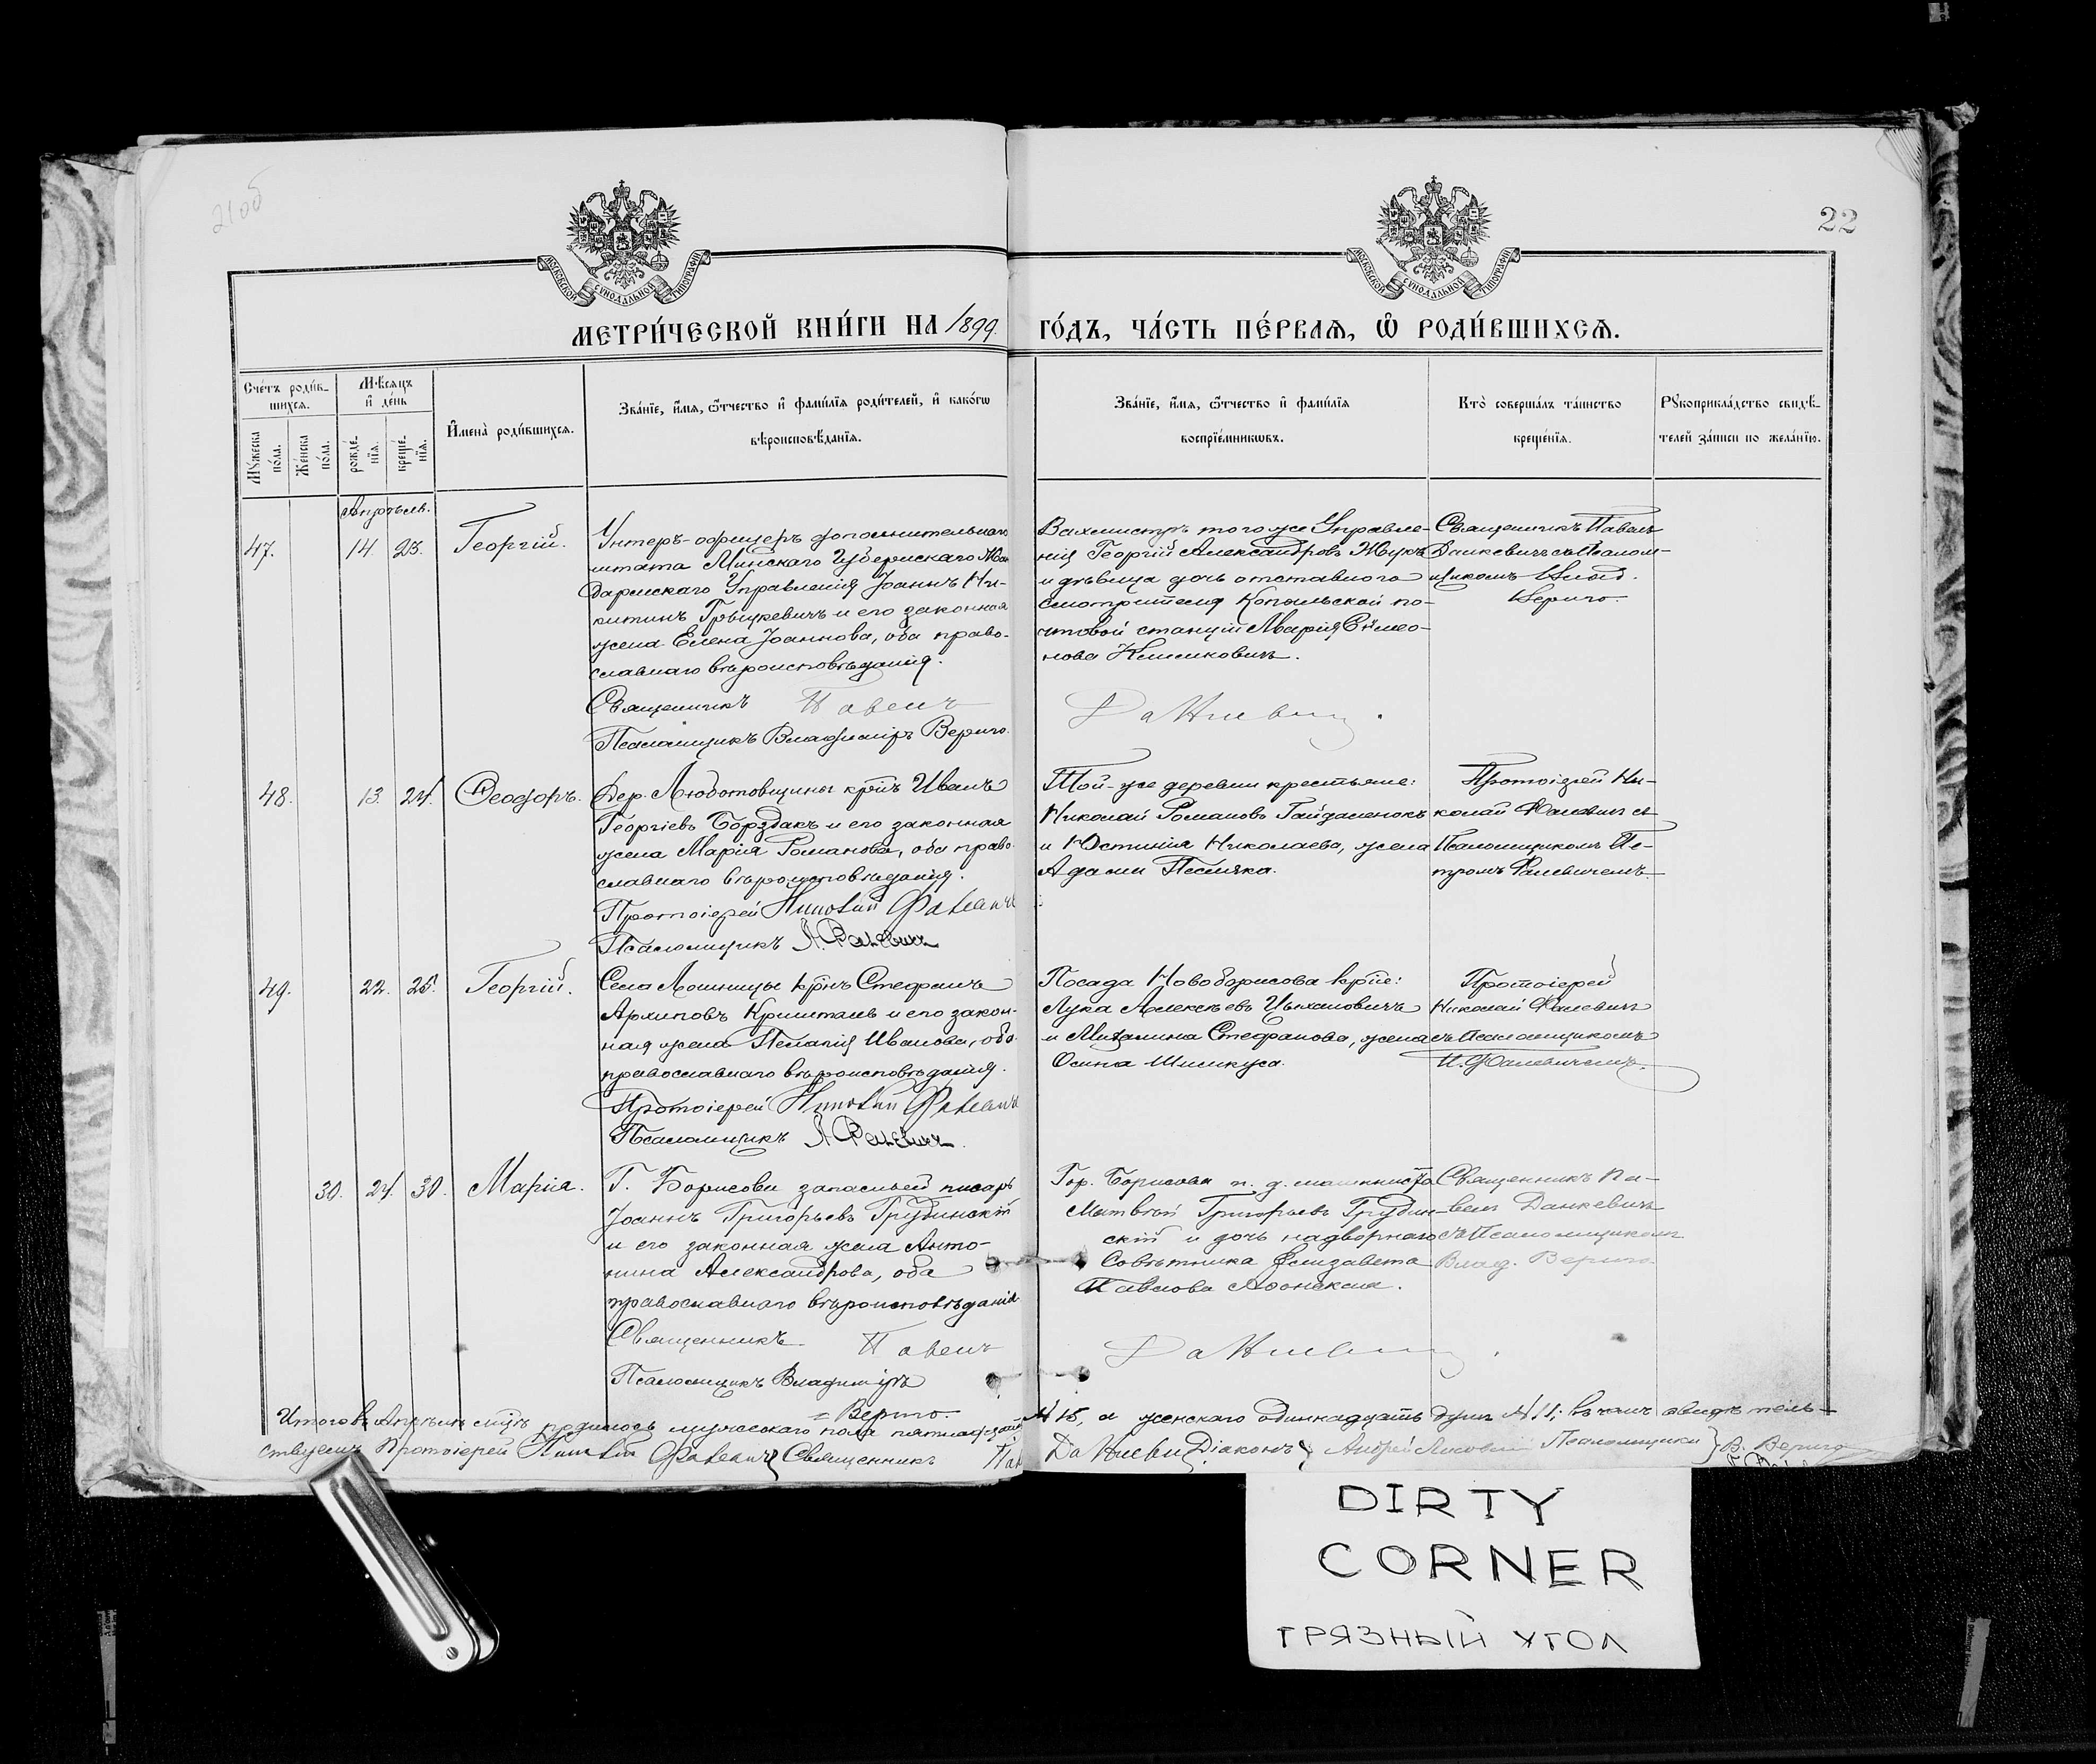 21об
22
МОСКОВСКОЙ СѴНОДАЛЬНОЙ ТИПОГРАФІИ
МОСКОВСКОЙ СѴНОДАЛЬНОЙ ТИПОГРАФІИ
МЕТРИ́ЧЕСКОЙ КНИ́ГИ НА 1899 ГО́ДЪ, ЧА́СТЬ ПЕ́РВАѦ, Ѡ РОДИ́ВШИХСѦ.
Сче́тъ роди́в-
шихсѧ.
Мꙋ́жеска по́ла.
Же́нска по́ла.
Мѣ́сѧцъ и де́нь
рожде́-нїѧ.
креще́-нїѧ.
И҆мена̀ роди́вшихсѧ.
Зва́нїе, и҆́мѧ, ѻ҆́тчество и҆ фами́лїѧ роди́телей, и҆ како́гѡ
вѣроисповѣ́данїѧ.
Зва́нїе, и҆́мѧ, ѻ҆́тчество и҆ фами́лїѧ
воспрїе́мникѡвъ.
Кто̀ соверша́лъ та́инство
креще́нїѧ.
Рꙋкоприкла́дство свидѣ́-
телей за́писи по жела́нїю.
Апрѣль.
47.
14. 23.
Георгій.
Унтеръ-офицеръ дополнительнаго
штата Минскаго Губернскаго Жан
дармскаго Управленія Іоаннъ Ни-
китинъ Грыцкевичъ и его законная
жена Елена Іоаннова, оба право-
славнаго вѣроисповѣданія.
Священникъ Павелъ
Псаломщикъ Владиміръ Верига.
Вахмистръ того же Управле-
нія Георгій Александровъ Жукъ
и дѣвица дочь отставного
смотрителя Копыльской по-
чтовой станціи Марія Сѵмео-
нова Климковичъ.
Данкевичъ.
Священникъ Павелъ
Данкевичъ съ Псалом-
щикомъ Влад.
Вериго.
48.
13. 24.
Ѳеодоръ.
Дер. Любатовщины кр꙼нъ Иванъ
Георгіевъ Борздакъ и его законная
жена Марія Романова, оба право
славнаго вѣроисповѣданія.
Протоіерей Николай Фалевичъ
Псаломщикъ П. Фалевичъ
Той-же деревни крестьяне:
Николай Романовъ Гайдаленокъ
и Юстинія Николаева, жена
Адама Песляка.
Протоіерей Ни-
колай Фалевичъ съ
Псаломщикомъ Пе-
тромъ Фалевичемъ.
49.
22. 25.
Георгій.
Села Лошницы кр꙼нъ Стефанъ
Архиповъ Кришталь и его закон-
ная жена Пелагія Иванова, оба
православнаго вѣроисповѣданія.
Протоіерей Николай Фалевичъ
Псаломщикъ П. Фалевичъ.
Посада Новоборисова кр꙼не:
Лука Алексѣевъ Цыхановичъ
и Михалина Стефанова, жена
Осипа Шимкуса.
Протоіерей
Николай Фалевичъ
съ Псаломщикомъ
П. Фалевичемъ.
30.
24. 30.
Марія.
Г. Борисова запасный писарь
Іоаннъ Григорьевъ Грудинскій
и его законная жена Анто-
нина Александрова, оба
православнаго вѣроисповѣданія
Священникъ Павелъ
Псаломщикъ Владиміръ
= Верига.
Гор. Борисова п. д. машиниста
Матвѣй Григорьевъ Грудин-
скій и дочь надворнаго
Совѣтника Елизавета
Павлова
Данкевичъ.
Священникъ Па-
велъ Данкевичъ
съ Псаломщикомъ
Влад. Вериго.
Итого въ Апрѣлѣ м꙼цѣ родилось мужескаго пола пятнадцать № 15, а женскаго одиннадцать душъ № 11; въ чемъ свидѣтель-
ствуемъ Протоіерей Николай Фалевичъ Священникъ Павелъ Данкевичъ Діаконъ Андрей Псаломщики В. Верига
DIRTY
CORNER
ГРЯЗНЫЙ УГОЛ